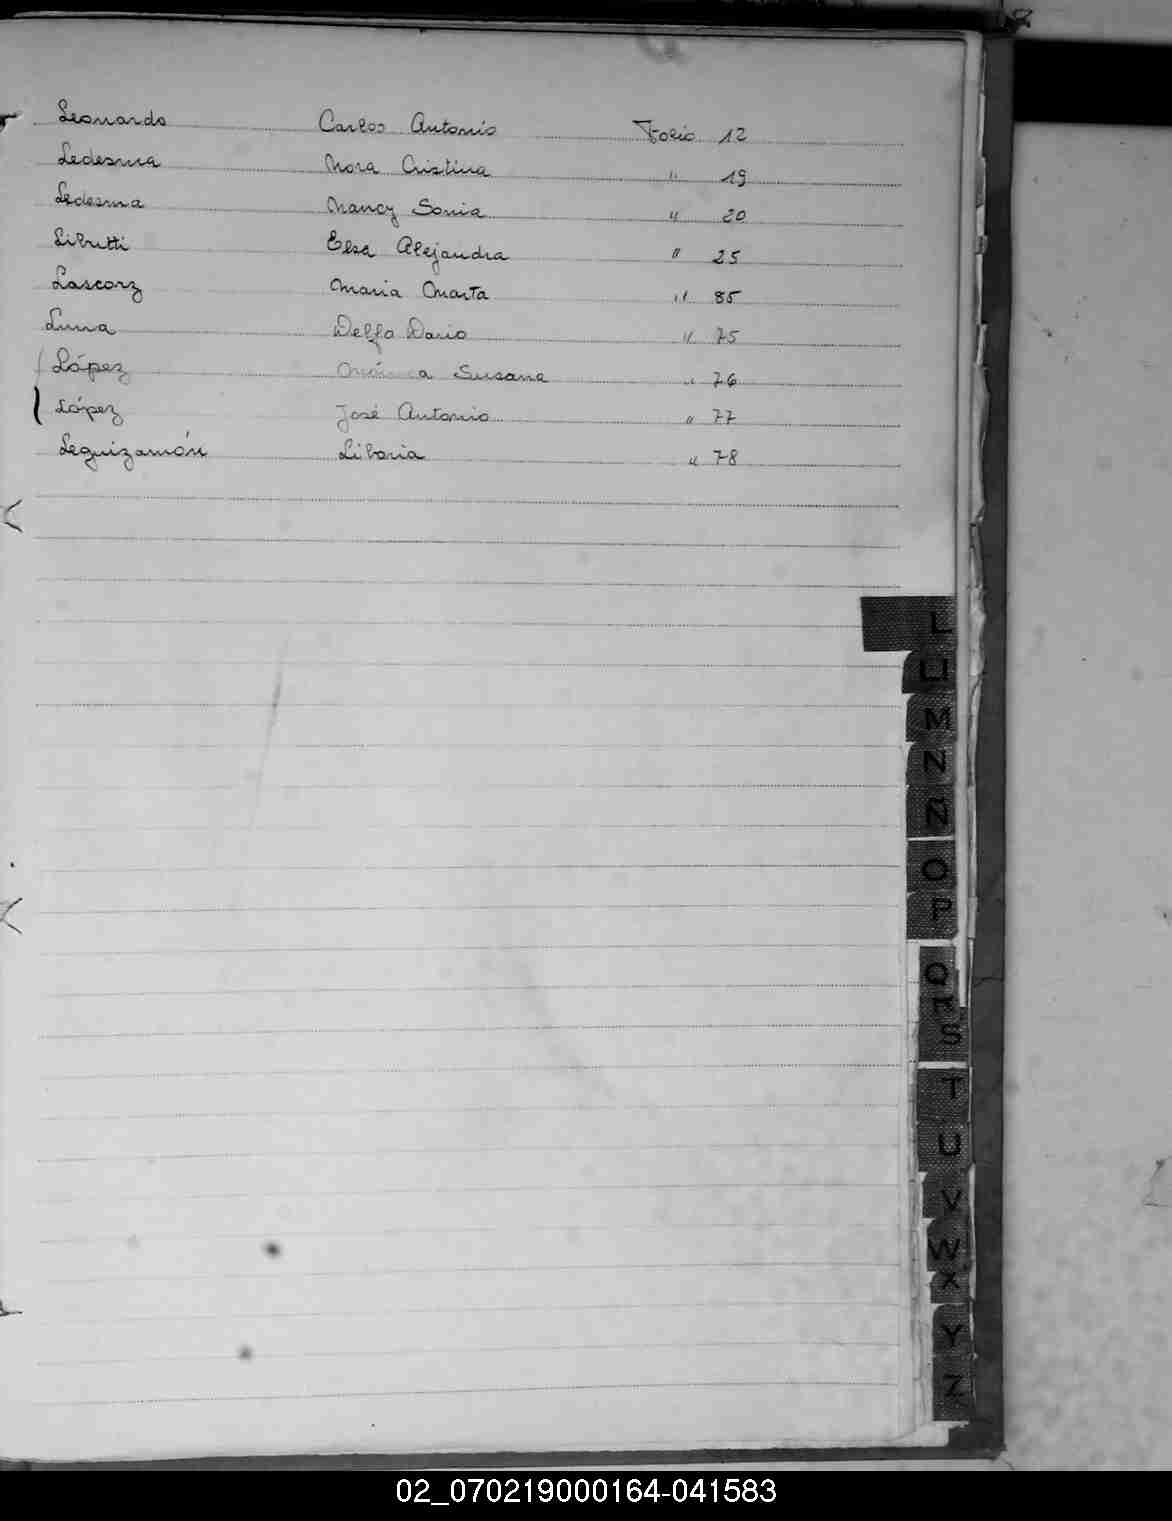 Leonardo Carlos Antonio Folio 12
Ledesma Nora Cristina " 19
Ledesma Nancy Sonia " 20
Libutti Elsa Alejandra " 25
Lascorz Maria Marta " 85
Luna Delfo Dario " 75
López Mónica Susana " 76
López José Antonio " 77
Leguizamón Liboria " 78
L
Ll
M
N
Ñ
O
P
Q
R
S
T
U
V
W
X
Y
Z
02_070219000164-041583